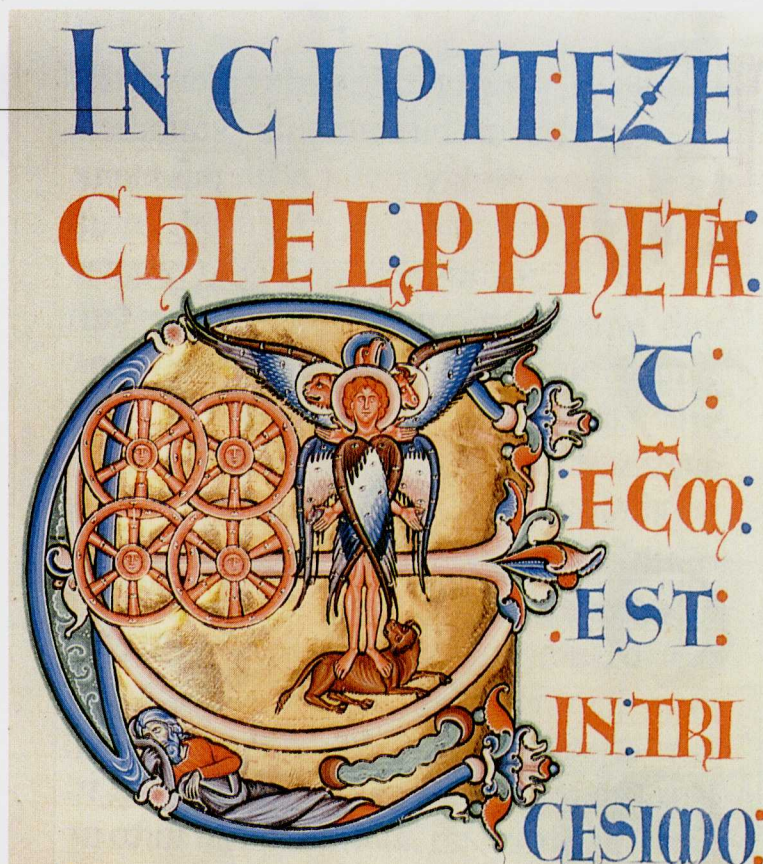 INCIPIT:EZE
ChIEL:PPhETA:
ET:
FCM:
EST:
IN:TRI
CESIMO: